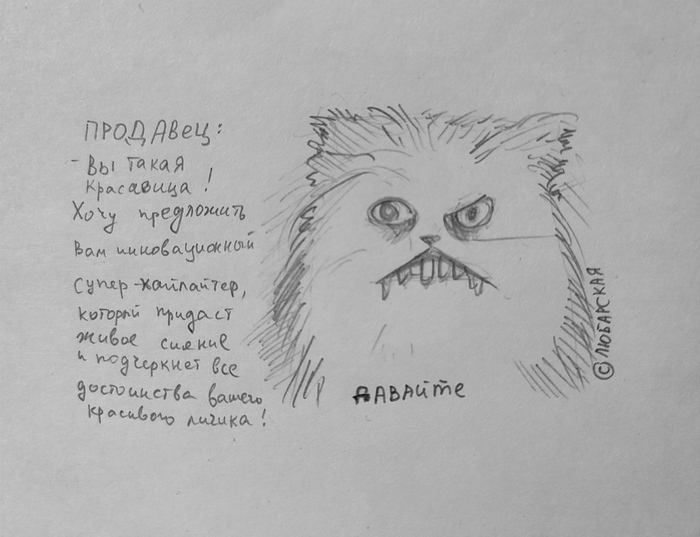 ПРОДАВЕЦ:
- Вы такая
красавица!
Хочу предложить
Вам инновационный
Супер-хайлайтер,
который придаст
живое сияние
и подчеркнет все
достоинства вашего
красивого личика!
ДАВАЙТЕ
© ЛЮБАРСКАЯ